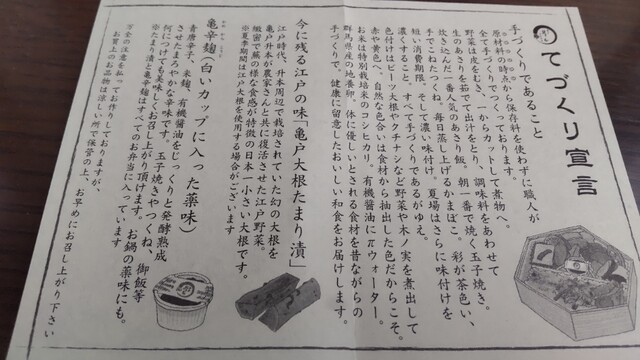 てづくり宣言
手づくりであること
原材料の時点から保存料を使わずに職人が
全て手づくりでつくっております。
野菜は皮をむき、一からカットして煮物へ。
生のあさりを茹でて出汁をとり、調味料をあわせて
炊きこんだ一番人気のあさり飯、朝一番で焼く玉子焼き。
手でこねたつくね。毎日蒸し上げるかまぼこ。彩が茶色い、
短い消費期限、そして濃い味付け。夏場はさらに味付けを
濃くすること。すべて手づくりであるがゆえ。
色付けはビーツ大根やクチナシなど野菜や木ノ実を煮出して
赤や黄色へ。自然な色合いは食材から抽出した色だからこそ。
お米は特別栽培米のコシヒカリ。有機醤油にπウォーター。
群馬県産の地養卵。体に優しいとされる食材を昔ながらの
手づくりで、健康に留意したおいしい和食をお届けします。
今に残る江戸の味「亀戸大根たまり漬」
江戸時代、升本周辺で栽培されていた幻の大根を
亀戸升本が農家さんと共に復活させた江戸野菜。
緻密で蕪の様な食感が特徴の日本一小さい大根です。
※夏季期間は江戸大根を使用する場合がございます
亀辛麹（白いカップに入った薬味）
青唐辛子、米麹、有機醤油をじっくりと発酵熟成
させたまろやかな辛味です。玉子焼きやつくね、御飯等
何につけても美味しくお召し上がり頂けます。お鍋の薬味にも。
※たまり漬と亀辛麹はすべてのお弁当に入っています
万全の注意を払ってお作りしておりますが、
お買上のお品物は涼しい所で保管の上、お早めにお召し上がり下さい